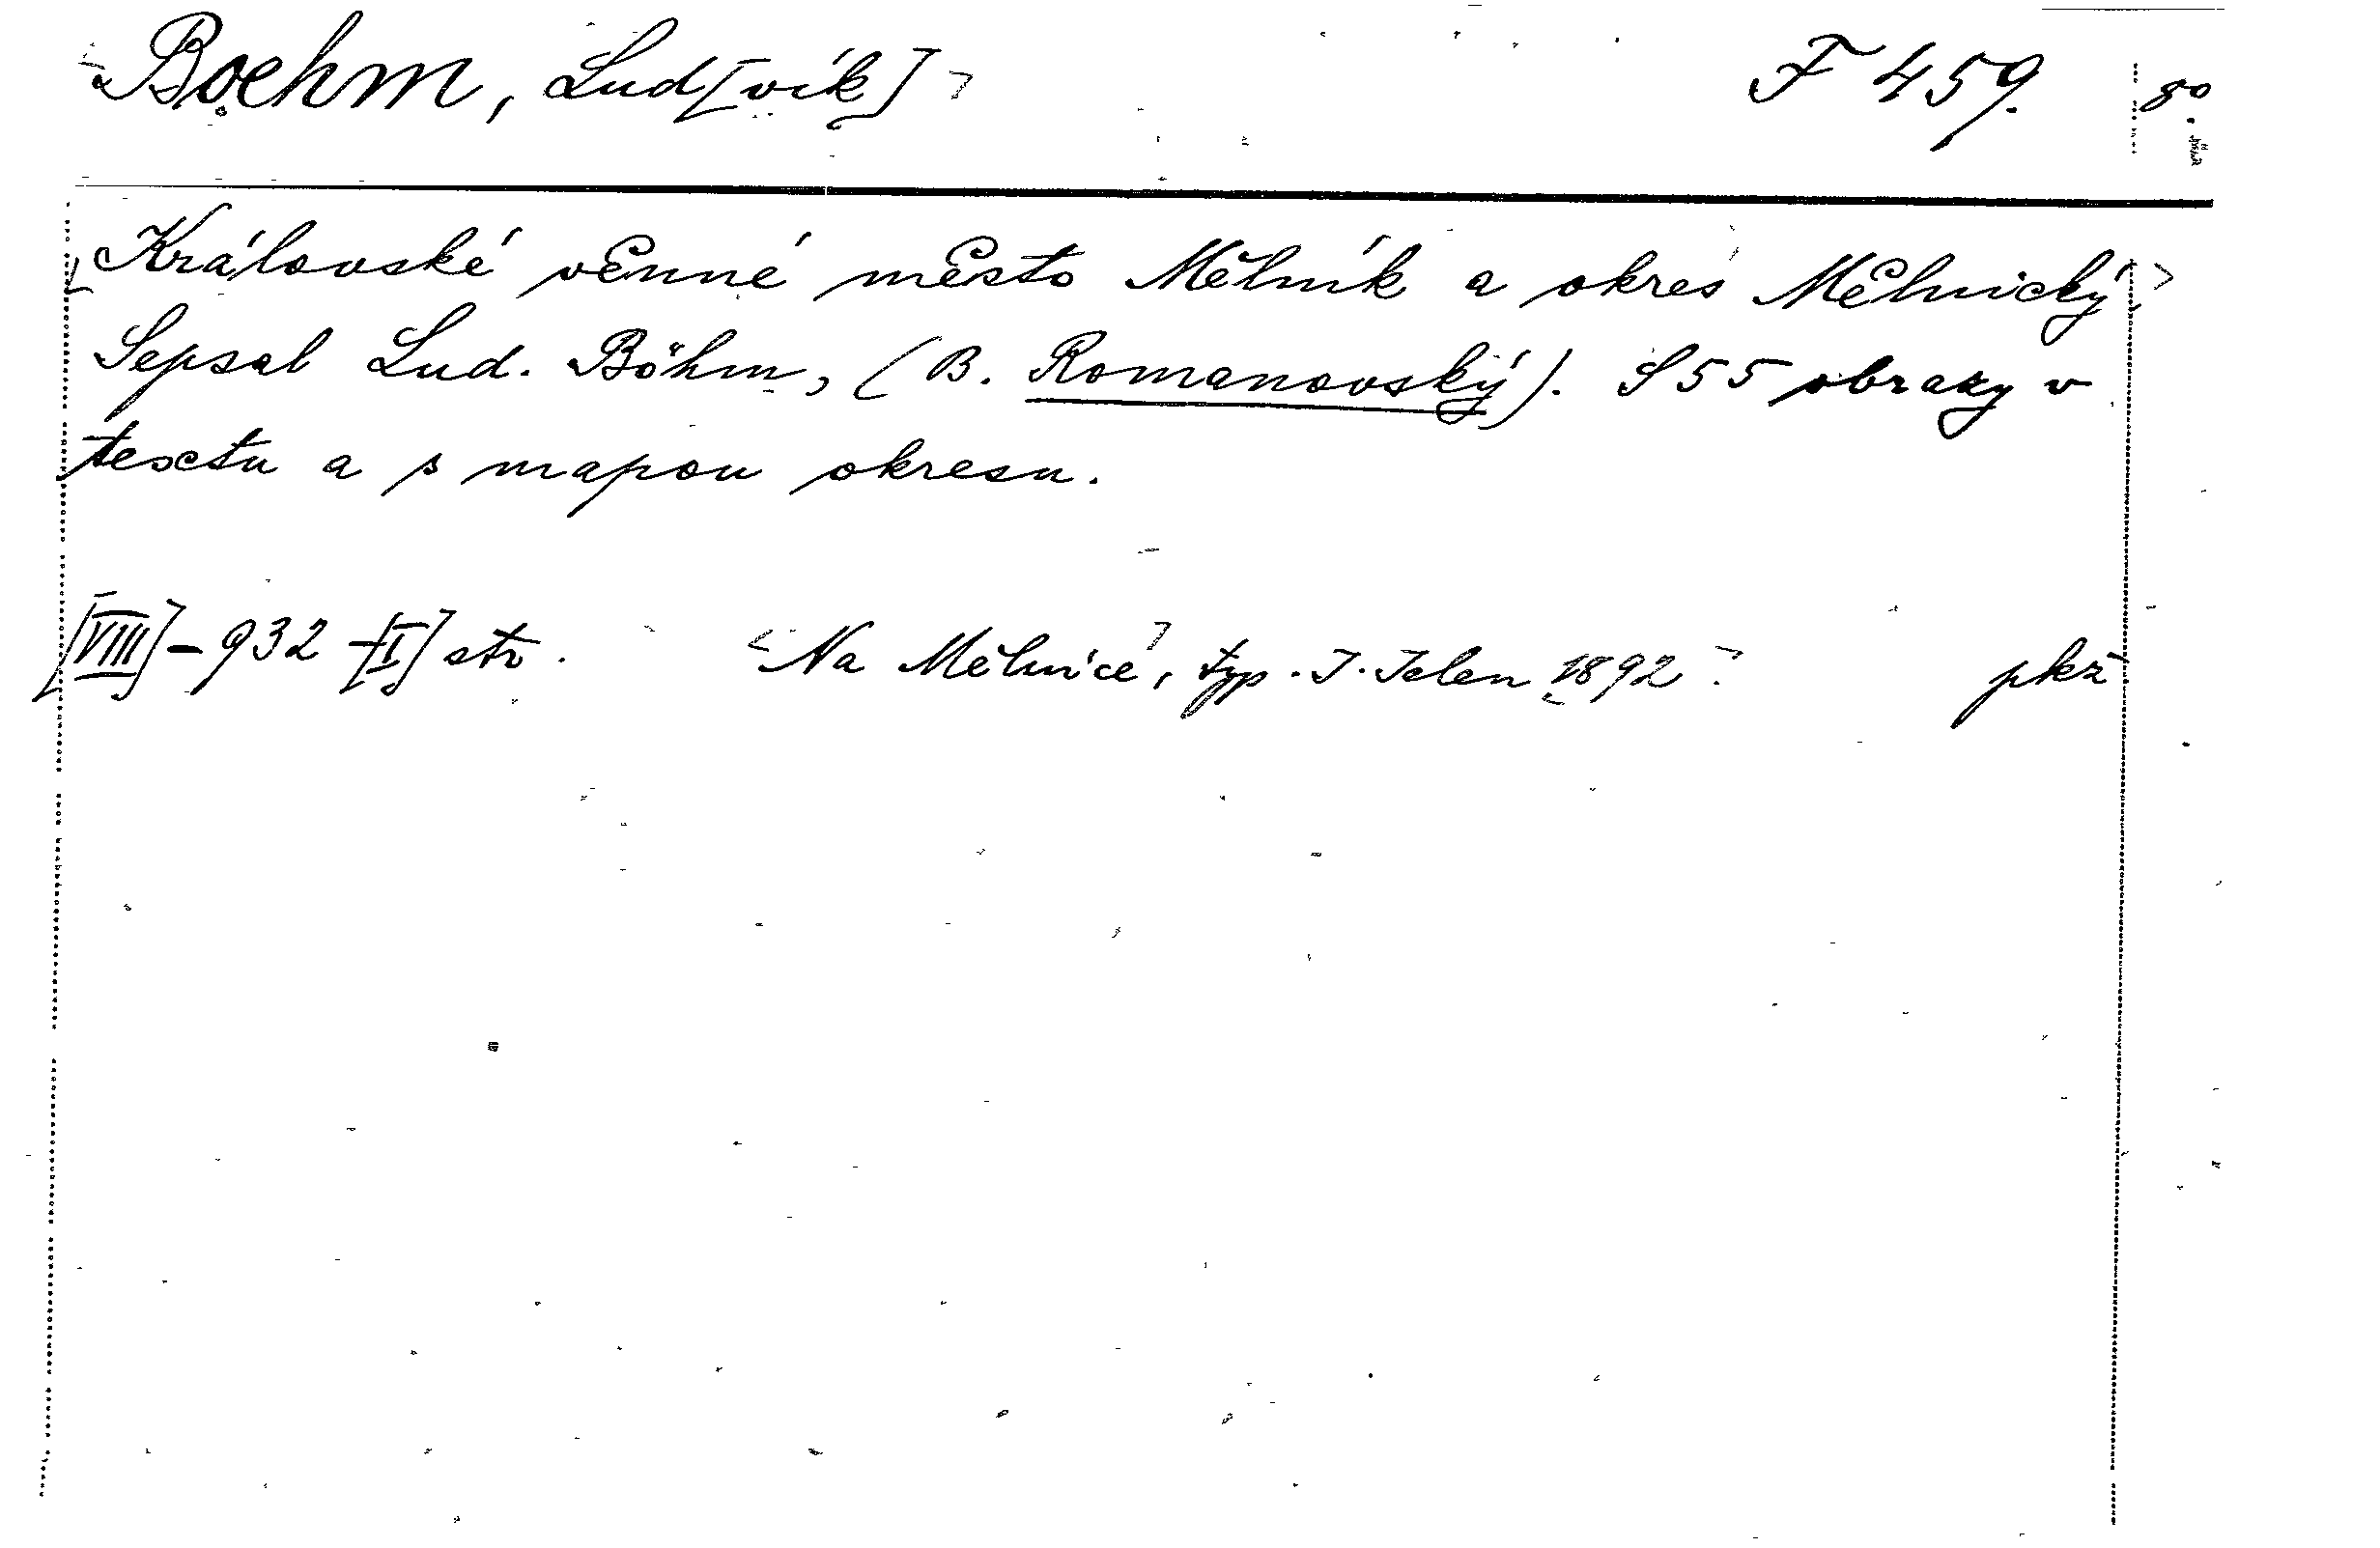 Boehm, Lud[vík] F 459. 8°.
Královské věnné město Mělník a okres Mělnický.
Sepsal Lud. Böhm, (B. Romanovský). S 55 obrazy v
textu a s mapou okresu.
[VIII] - 932 - [I] str. Na Mělníce, typ. J. Jelen 1892. pkž